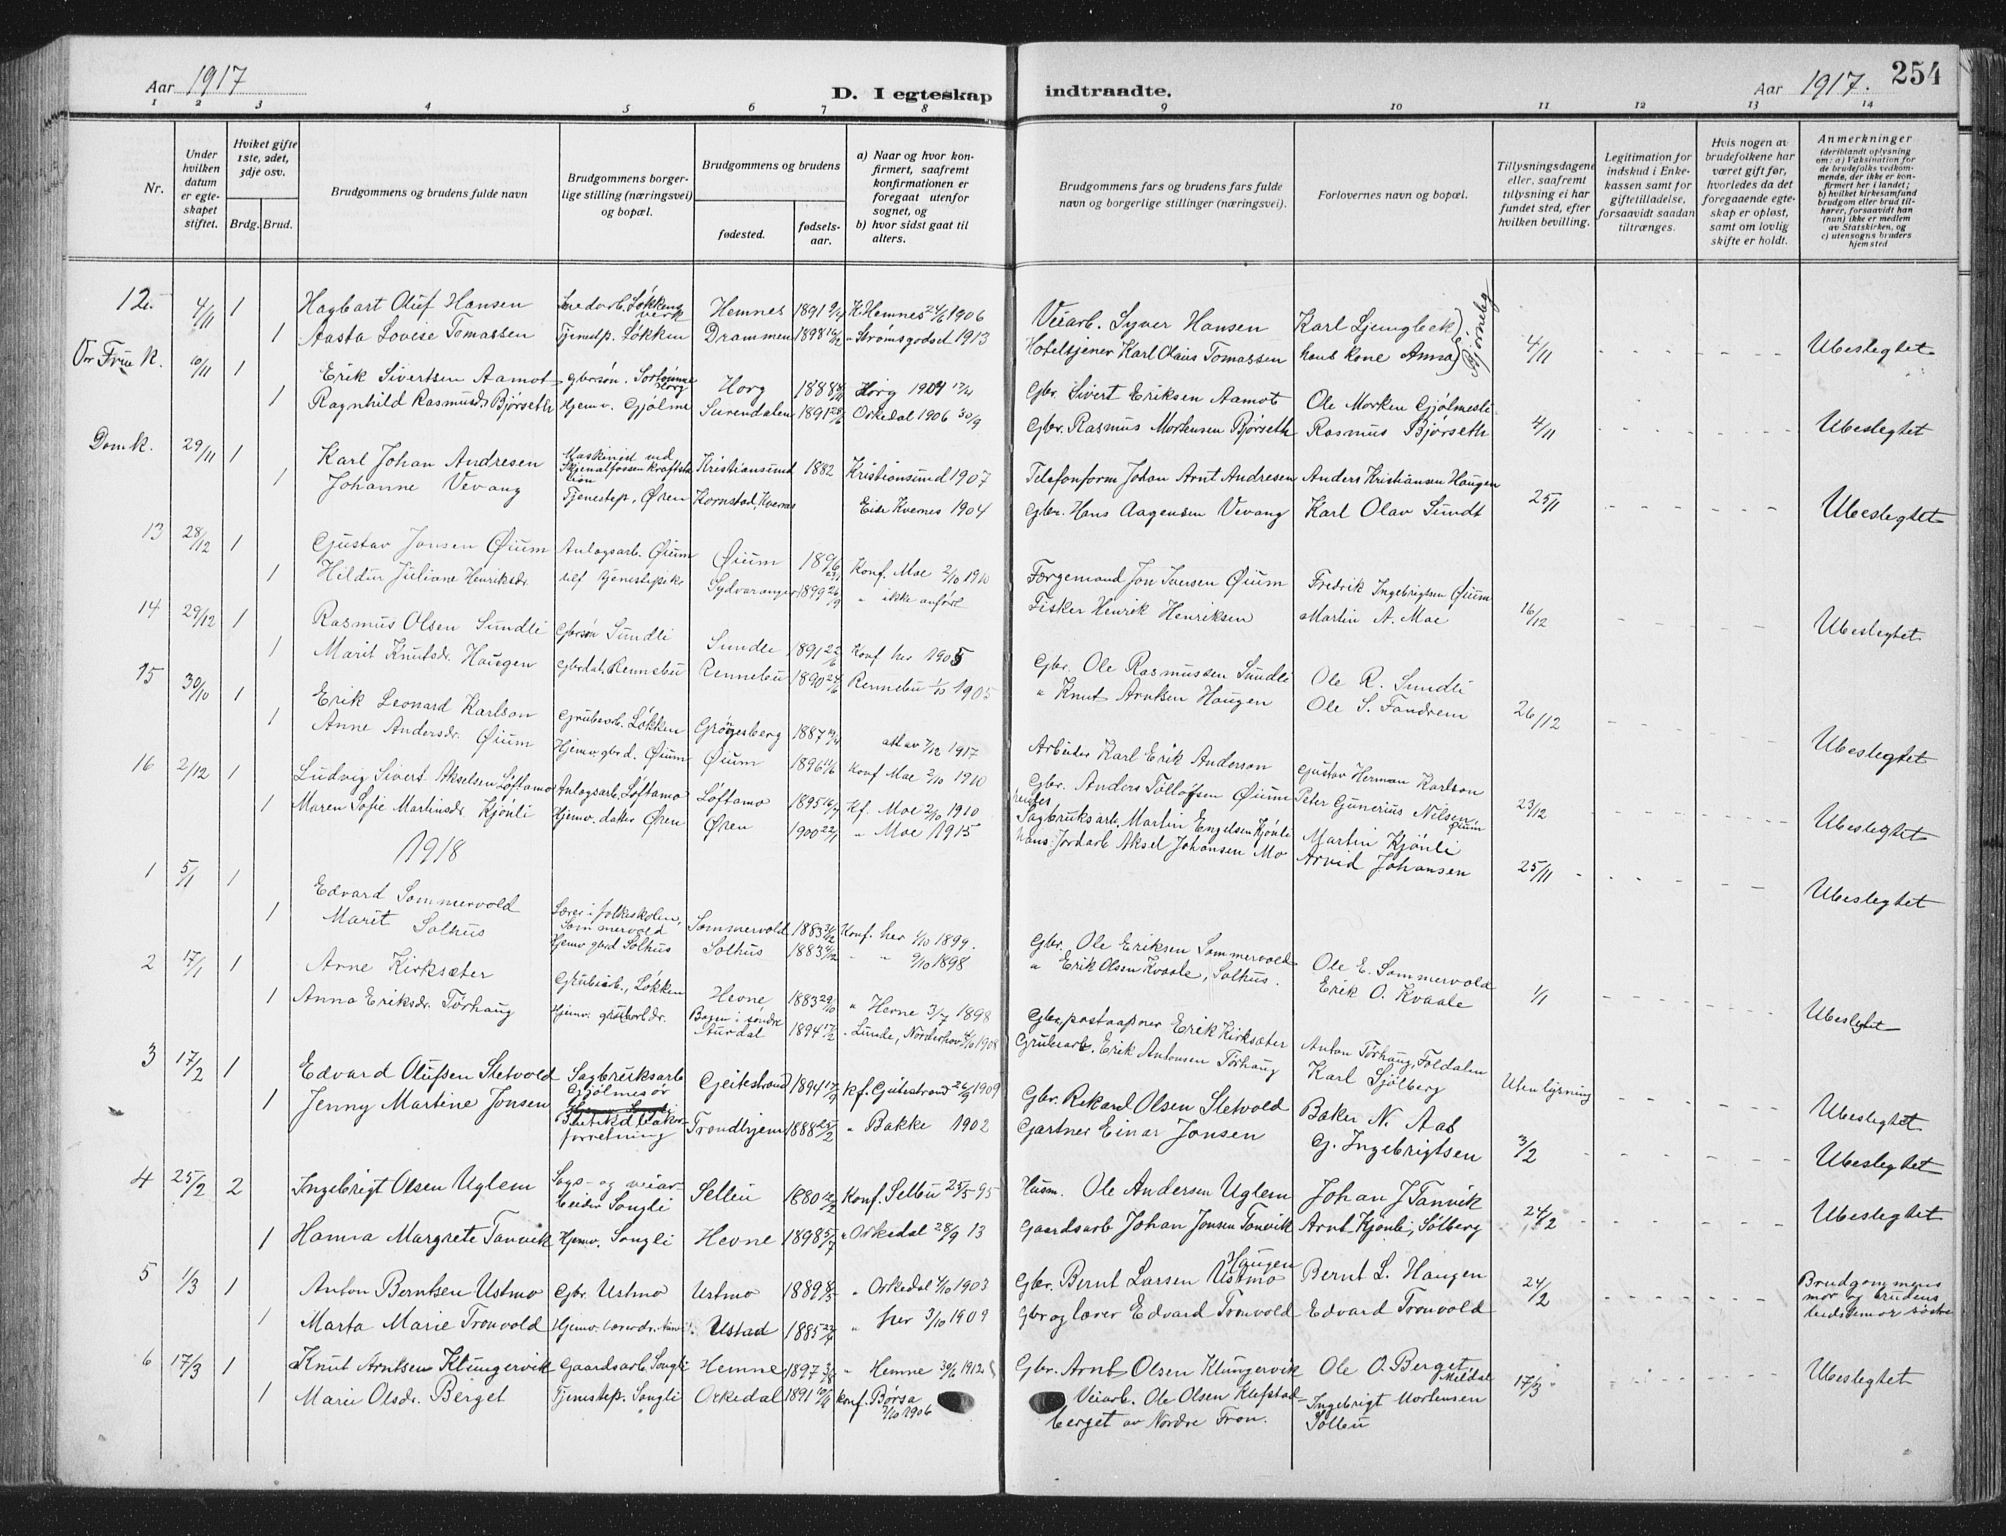 Aar 1917
D. I egteskap
indtraadte.
Aar 1917.
254
1 2 3 4 5 6 7 8 9 10 11 12 13 14
Nr.
Under hvilken datum er egteskapet stiftet.
Hviket gifte 1ste, 2det, 3dje osv.
Brdg. Brud.
Brudgommens og brudens fulde navn
Brudgommens borgerlige stilling (næringsvei) og bopæl.
Brudgommens og brudens
fødested.
fødselsaar.
a) Naar og hvor konfirmert, saafremt konfirmationen er foregaat utenfor sognet, og
b) hvor sidst gaat til alters.
Brudgommens fars og brudens fars fulde navn og borgerlige stillinger (næringsvei).
Forlovernes navn og bopæl.
Tillysningsdagene eller, saafremt tillysning ei har fundet sted, efter hvilken bevilling.
Legitimation for indskud i Enkekassen samt for giftetilladelse, forsaavidt saadan tiltrænges.
Hvis nogen av brudefolkene har været gift før, hvorledes da det foregaaende egteskap er opløst, samt om lovlig skifte er holdt.
Anmerkninger (deriblandt oplysning om: a) Vaksination for de brudefolks vedkommende, der ikke er konfirmert her i landet; b) hvilket kirkesamfund brudgom eller brud tilhører, forsaavidt han (hun) ikke er medlem av Statskirken, og c) utensogns bruders hjemsted
12. 4/11 1 Hagbart Oluf Hansen Løkkens verk Hemnes 1891 K. Hemnes 24/6 1906 Veiarb. Syver Hansen Karl Ljungbeck Bjørneby 4/11 Ubeslegtet
1 Aasta Lovise Tomassen Tjenestp. Løkken Drammen 1898 " Strømsgodset 1913 Hotelstjener Karl Olaus Tomassen hans kone Anna
Vor Frue k. 10/11 1 Erik Sivertsen Aamot gbrsøn. Horg 1888 Horg 1904 Gbr. Sivert Eriksen Aamot Ole Morken Gjølmesli 4/11 Ubeslegtet
1 Ragnhild Rasmusdr Bjørseth Hjemv. Gjølme Surendalen 1891 Orkedal 1906 30/9 Gbr. Rasmus Mortensen Bjørseth Rasmus Bjørseth
Domk. 29/11 1 Karl Johan Andresen Maskinist ved Skjenalfossen kraftstation Kristiansund 1882 Kristiansund 1907 Telefonform Johan Arnt Andresen Anders Kristiansen Haugen 25/11 Ubeslegtet
1 Johanne Vevang Tjenestep. Øren Kornstad, Kvernes Kvernes 1904 Gbr. Hans Aagensen Vevang Karl Olav Sundt
13 28/12 1 Gustav Jonsen Øium Anlagsarb. Øium Øium 1896 Konf. Moe 2/10 1910 Færgemand Jon Iversen Øium Fredrik Ingebrigtsen Øium 16/12 Ubeslegtet.
1 Hildur Juliane Henriksdr. Sydvaranger 1899 " ikke anført Fisker Henrik Henriksen Martin A. Moe
14 29/12 1 Rasmus Olsen Sundli Gbrsøn Sundli Sundli 1891 Konf her 1905 Gbr. Ole Rasmussen Sundli Ole R. Sundli 26/12 Ubeslegtet
1 Marit Knutsdr. Haugen Gbrdat. Rennebu Rennebu 1890 Rennebu 1/10 1905 " Knut Arntsen Haugen Ole S. Fandrem
15 30/10 1 Erik Leonard Karlson Grubearb. Løkken 1887 1917 Arbeider Karl Erik Anderson Gustav Herman Karlson 23/12 Ubeslegtet
1 Anne Andersdr. Øium Hjemv. gbrd. Øium Øium 1896 Konf Moe 2/10 1910 Gbr. Anders Tølløfsen Øium Peter Gunerius Nilsen Øium
16 2/12 1 Ludvig Sivert Akselsen Løftamo Anlagsarb. Løftamo Løftamo 1895 Kf. Moe 2/10 1910 Sagbruksarb. Martin Engelsen Kjønli Martin Kjønli 25/11 Ubeslegtet
1 Maren Sofie Martinsdr. Kjønli Hjemv. datter Øren Øren 1900 " Moe 1915 Jordarb Aksel Johansen Mo Arvid Johansen
1918
1 5/1 1 Edvard Sommervold Lærer i folkeskolen, Sommervold Sommervold 1883 Konf. her 1/10 1899. Gbr. Ole Eriksen Sommervold Ole E. Sommervold 1/1 Ubeslegtet
1 Marit Solhus Hjemv gbrd Solhus Solhus 1883 " " 9/10 1898 " Erik Olsen Kvaale, Solhus. Erik O. Kvaale
2 17/1 1 Arne Kirksæter Grubearb., Løkken Hevne 1883 " Hevne 3/7 1898 Gbr, postaapner Erik Kirksæter Anton Tørhaug, Foldalen Utenlysning Ubeslegtet
1 Anna Eriksdr. Tørhaug Hjemv. Bagn i søndre 1894 " Lunde, Norderhov 1908 Grubearb. Erik Antonsen Tørhaug Karl Sjølberg
3 17/2 1 Edvard Olufsen Sletvold Sagbruksarb Gjølmesør Geitestrand 1894 Kf. Geitestrand 26/9 1909 Gbr. Rikard Olsen Sletvold Baker N. Aas 3/2 Ubeslegtet
1 Jenny Martine Jonsen forretning Trondhjem 1888 " Bakke 1902 Gartner Einar Jonsen G. Ingebrigtsen Ubeslegtet
4 25/2 2 Ingebrigt Olsen Uglem Sags- og veiarbeider Songli Selbu 1880 Konf. Selbu 25/5 95 Husm. Ole Andersen Uglem Johan J Tanvik 24/2 Ubeslegtet
1 Hanna Margrete Tanvik Hjemv. Songli Hevne 1898 " Orkedal 28/9 13 Gaardsarb Johan Jonsen Tanvik Arnt Kjønli, Sølberg
5 1/3 1 Anton Berntsen Ustmo Gbr. Ustmo Ustmo 1889 " Orkedal 1903 Gbr. Bernt Larsen Haugen Ustmo Bernt L. Haugen 24/2 Brudgommens mor og brudens
1 Marta Marie Tronvold Hjemv. lærerdr. Ustad 1885 " her 3/10 1909 Gbr og lærer Edvard Tronvold Edvard Tronvold
6 17/3 1 Knut Arntsen Klungervik Gaardsarb. Songli Hemne 1897 " Hemne 30/6 1912 Gbr. Arnt Olsen Klungervik Ole O. Berget Meldal 17/3 Ubeslegtet
1 Marie Olsdr. Berget Tjenestep. Songli Orkedal 1891 konf. Børsa 7/10 1906 Veiarb. Ole Olsen Klefstadberget av Nordre Fron. Ingebrigt Mortensen Solbu